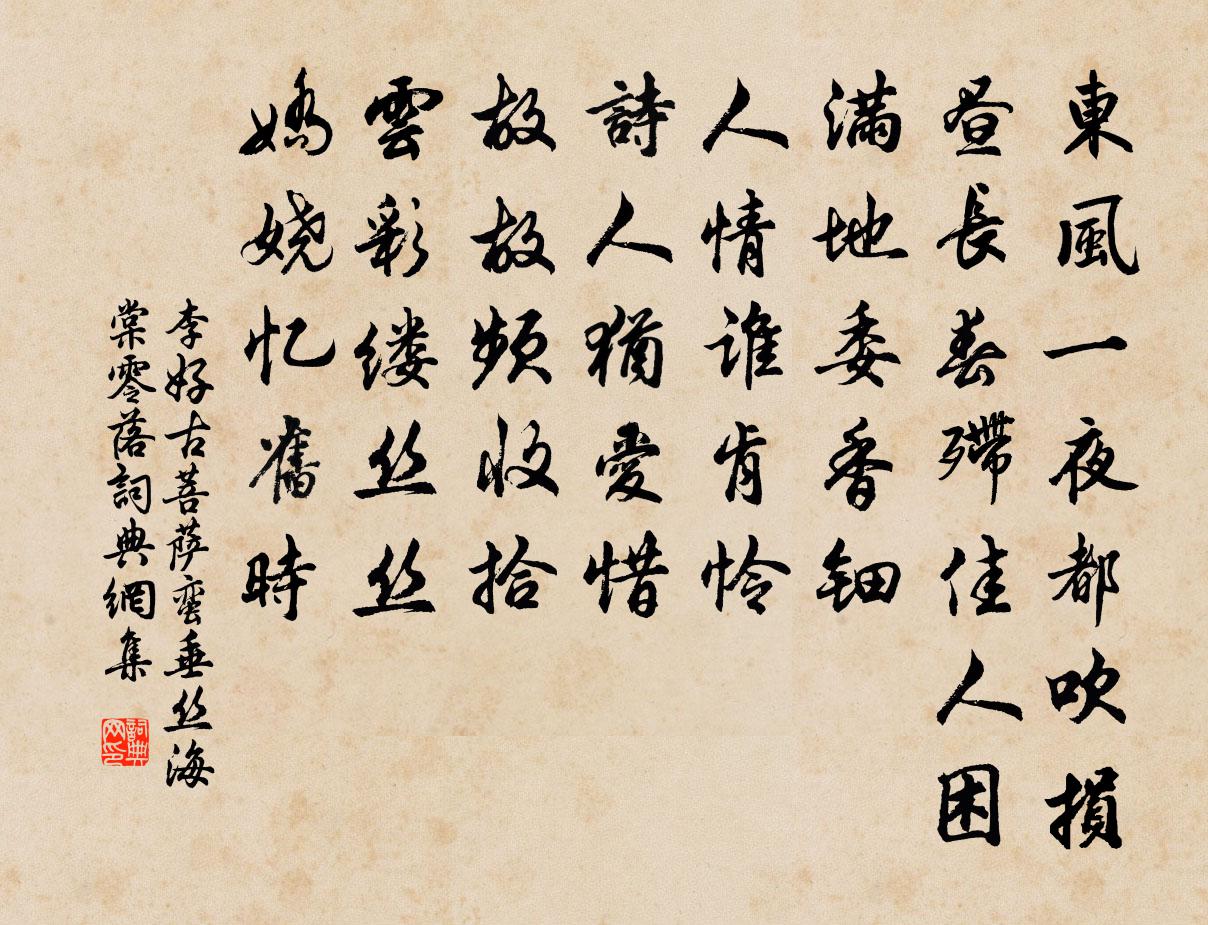 東風一夜都吹損
昼長春殢佳人困
滿地委香鈿
人情誰肯怜
詩人猶愛惜
故故頻收拾
雲彩缕丝丝
嬌娆忆舊時
李好古菩萨蛮垂丝海
棠零落詞典網集
詞典网印